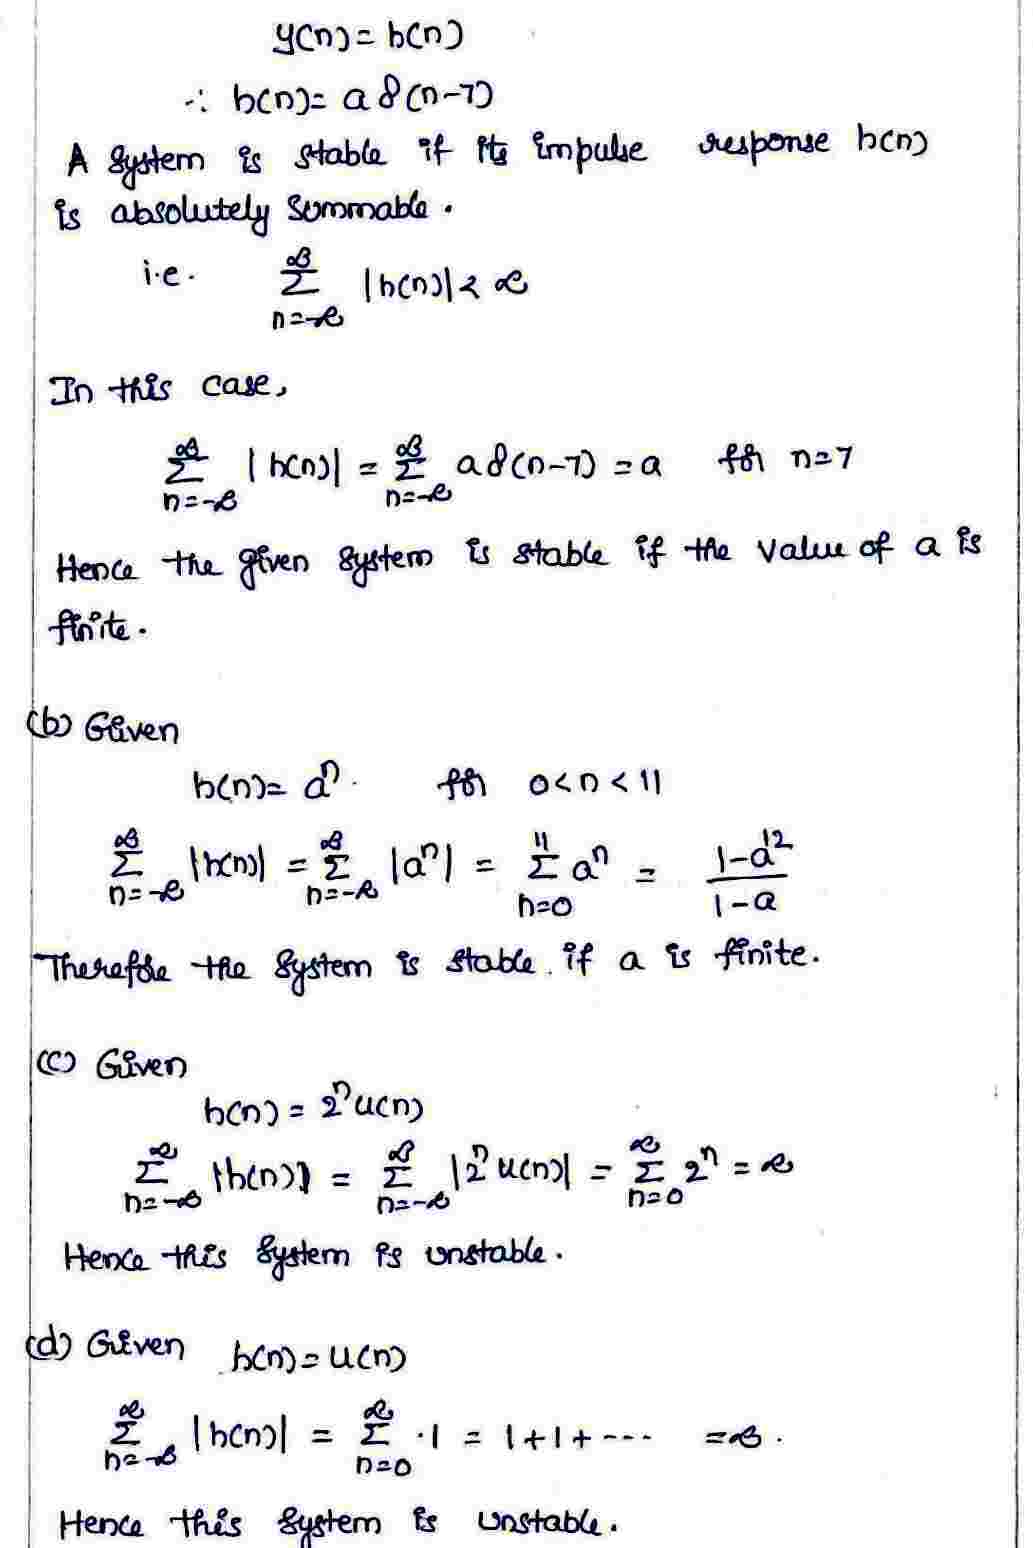 y(n) = h(n)
∴ h(n) = a δ(n-7)
A system is stable if its impulse response h(n)
is absolutely summable.
i.e. ∞Σn=-∞ |h(n)| < ∞
In this case,
∞Σn=-∞ |h(n)| = ∞Σn=-∞ a δ(n-7) = a for n=7
Hence the given system is stable if the value of a is
finite.
(b) Given
h(n) = aⁿ for 0<n<11
∞Σn=-∞ |h(n)| = ∞Σn=-∞ |aⁿ| = 11Σn=0 aⁿ = (1-a¹²)/(1-a)
Therefore the system is stable if a is finite.
(c) Given
h(n) = 2ⁿu(n)
∞Σn=-∞ |h(n)| = ∞Σn=-∞ |2ⁿ u(n)| = ∞Σn=0 2ⁿ = ∞
Hence this system is unstable.
(d) Given h(n) = u(n)
∞Σn=-∞ |h(n)| = ∞Σn=0 ·1 = 1+1+--- =∞.
Hence this system is unstable.